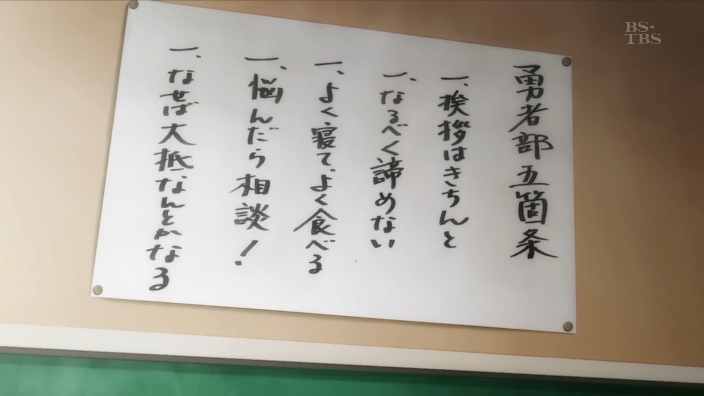 勇者部五箇条
一、挨拶はきちんと
一、なるべく諦めない
一、よく寝て、よく食べる
一、悩んだら相談！
一、なせば大抵なんとかなる
BS-
TBS